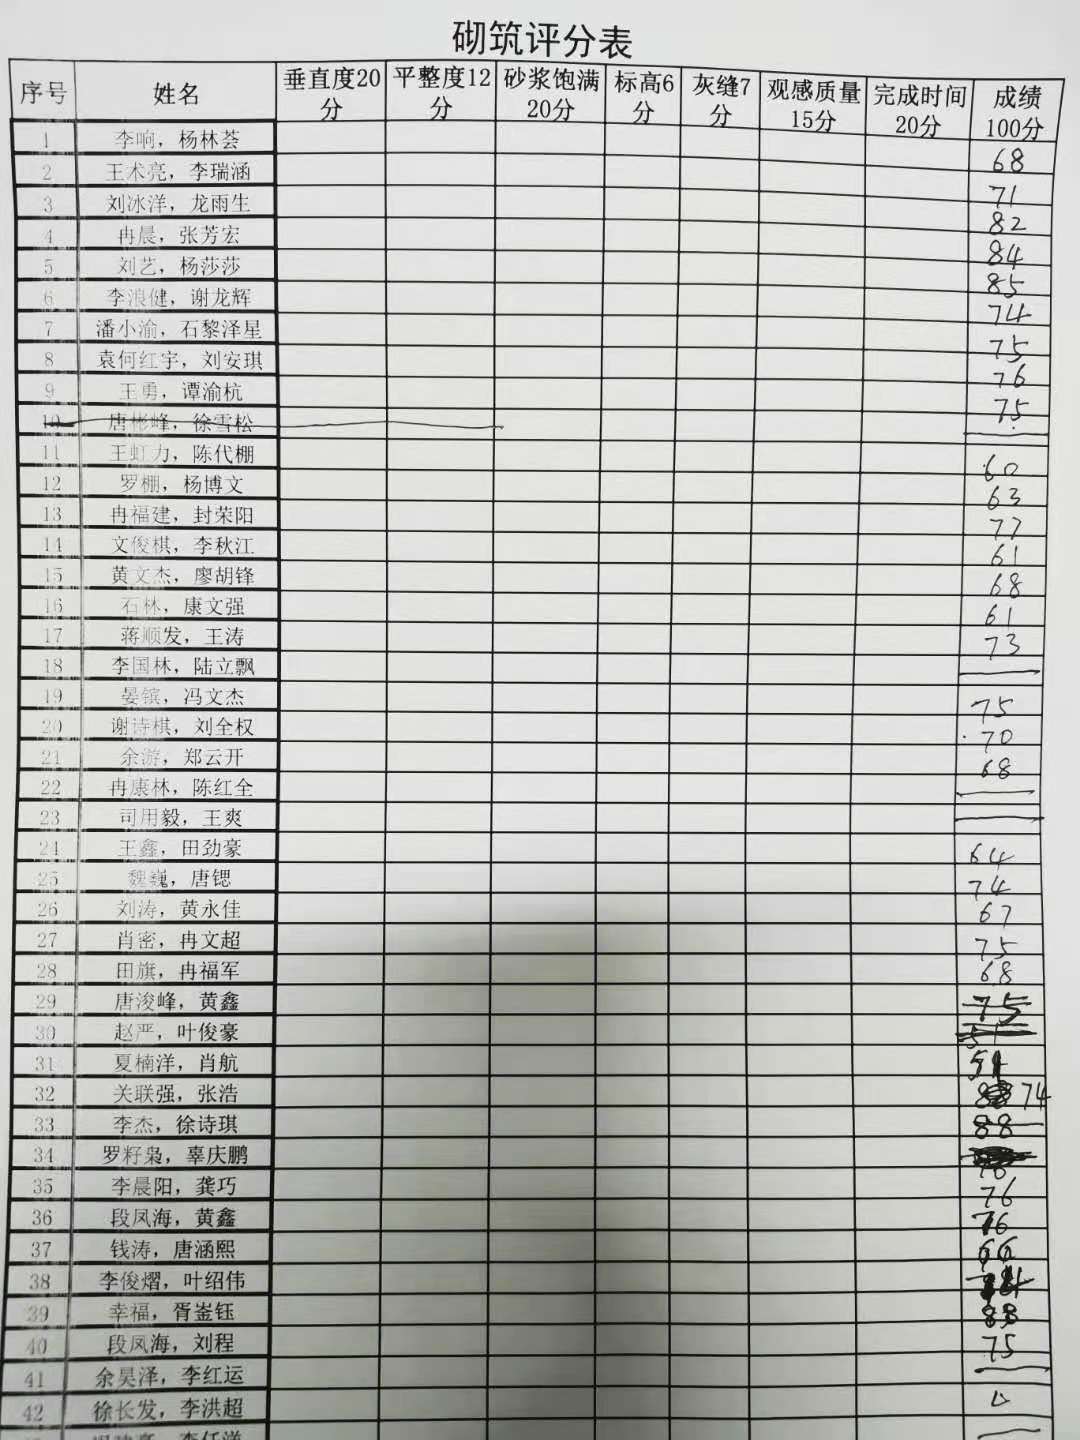 砌筑评分表
序号 姓名 垂直度20分 平整度12分 砂浆饱满20分 标高6分 灰缝7分 观感质量15分 完成时间20分 成绩100分
1 李响，杨林荟 68
2 王术亮，李瑞涵 71
3 刘冰洋，龙雨生 82
4 冉晨，张芳宏 84
5 刘艺，杨莎莎 85
6 李浪健，谢龙辉 74
7 潘小渝，石黎泽星 75
8 袁何红宇，刘安琪 76
9 王勇，谭渝杭 75
10 唐彬峰，徐雪松
11 王虹力，陈代棚 60
12 罗棚，杨博文 63
13 冉福建，封荣阳 77
14 文俊棋，李秋江 61
15 黄文杰，廖胡锋 68
16 石林，康文强 61
17 蒋顺发，王涛 73
18 李国林，陆立飘
19 晏镔，冯文杰 75
20 谢诗棋，刘全权 70
21 余游，郑云开 68
22 冉康林，陈红全
23 司用毅，王爽
24 王鑫，田劲豪 64
25 魏巍，唐锶 74
26 刘涛，黄永佳 67
27 肖密，冉文超 75
28 田旗，冉福军 68
29 唐浚峰，黄鑫 75
30 赵严，叶俊豪 51
31 夏楠洋，肖航
32 关联强，张浩 74
33 李杰，徐诗琪 88
34 罗籽枭，辜庆鹏 76
35 李晨阳，龚巧 76
36 段凤海，黄鑫 76
37 钱涛，唐涵熙 66
38 李俊熠，叶绍伟
39 幸福，胥崟钰 83
40 段凤海，刘程 75
41 余昊泽，李红运
42 徐长发，李洪超